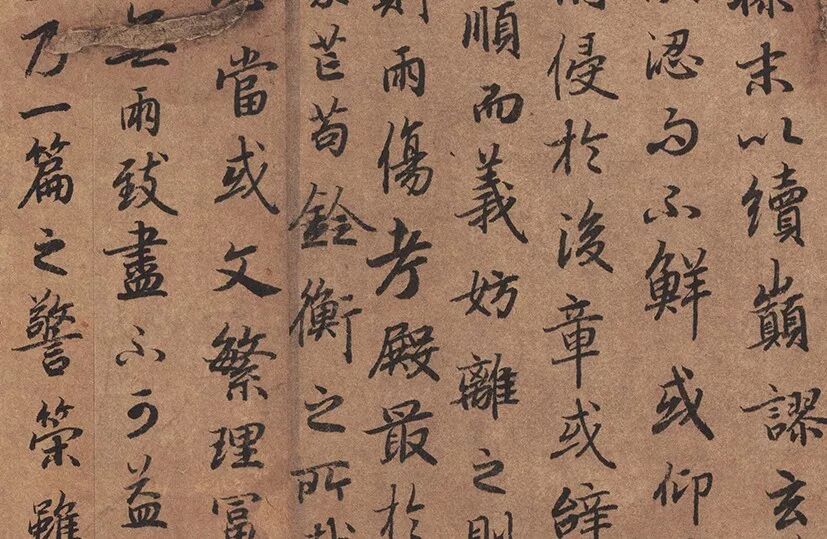 末以續巔謬玄
涊而不鮮或仰
侵於後章或辭
順而義妨離之則
則兩傷考殿最於
芒苟銓衡之所裁
當或文繁理富
無兩致盡不可益
乃一篇之警策雖